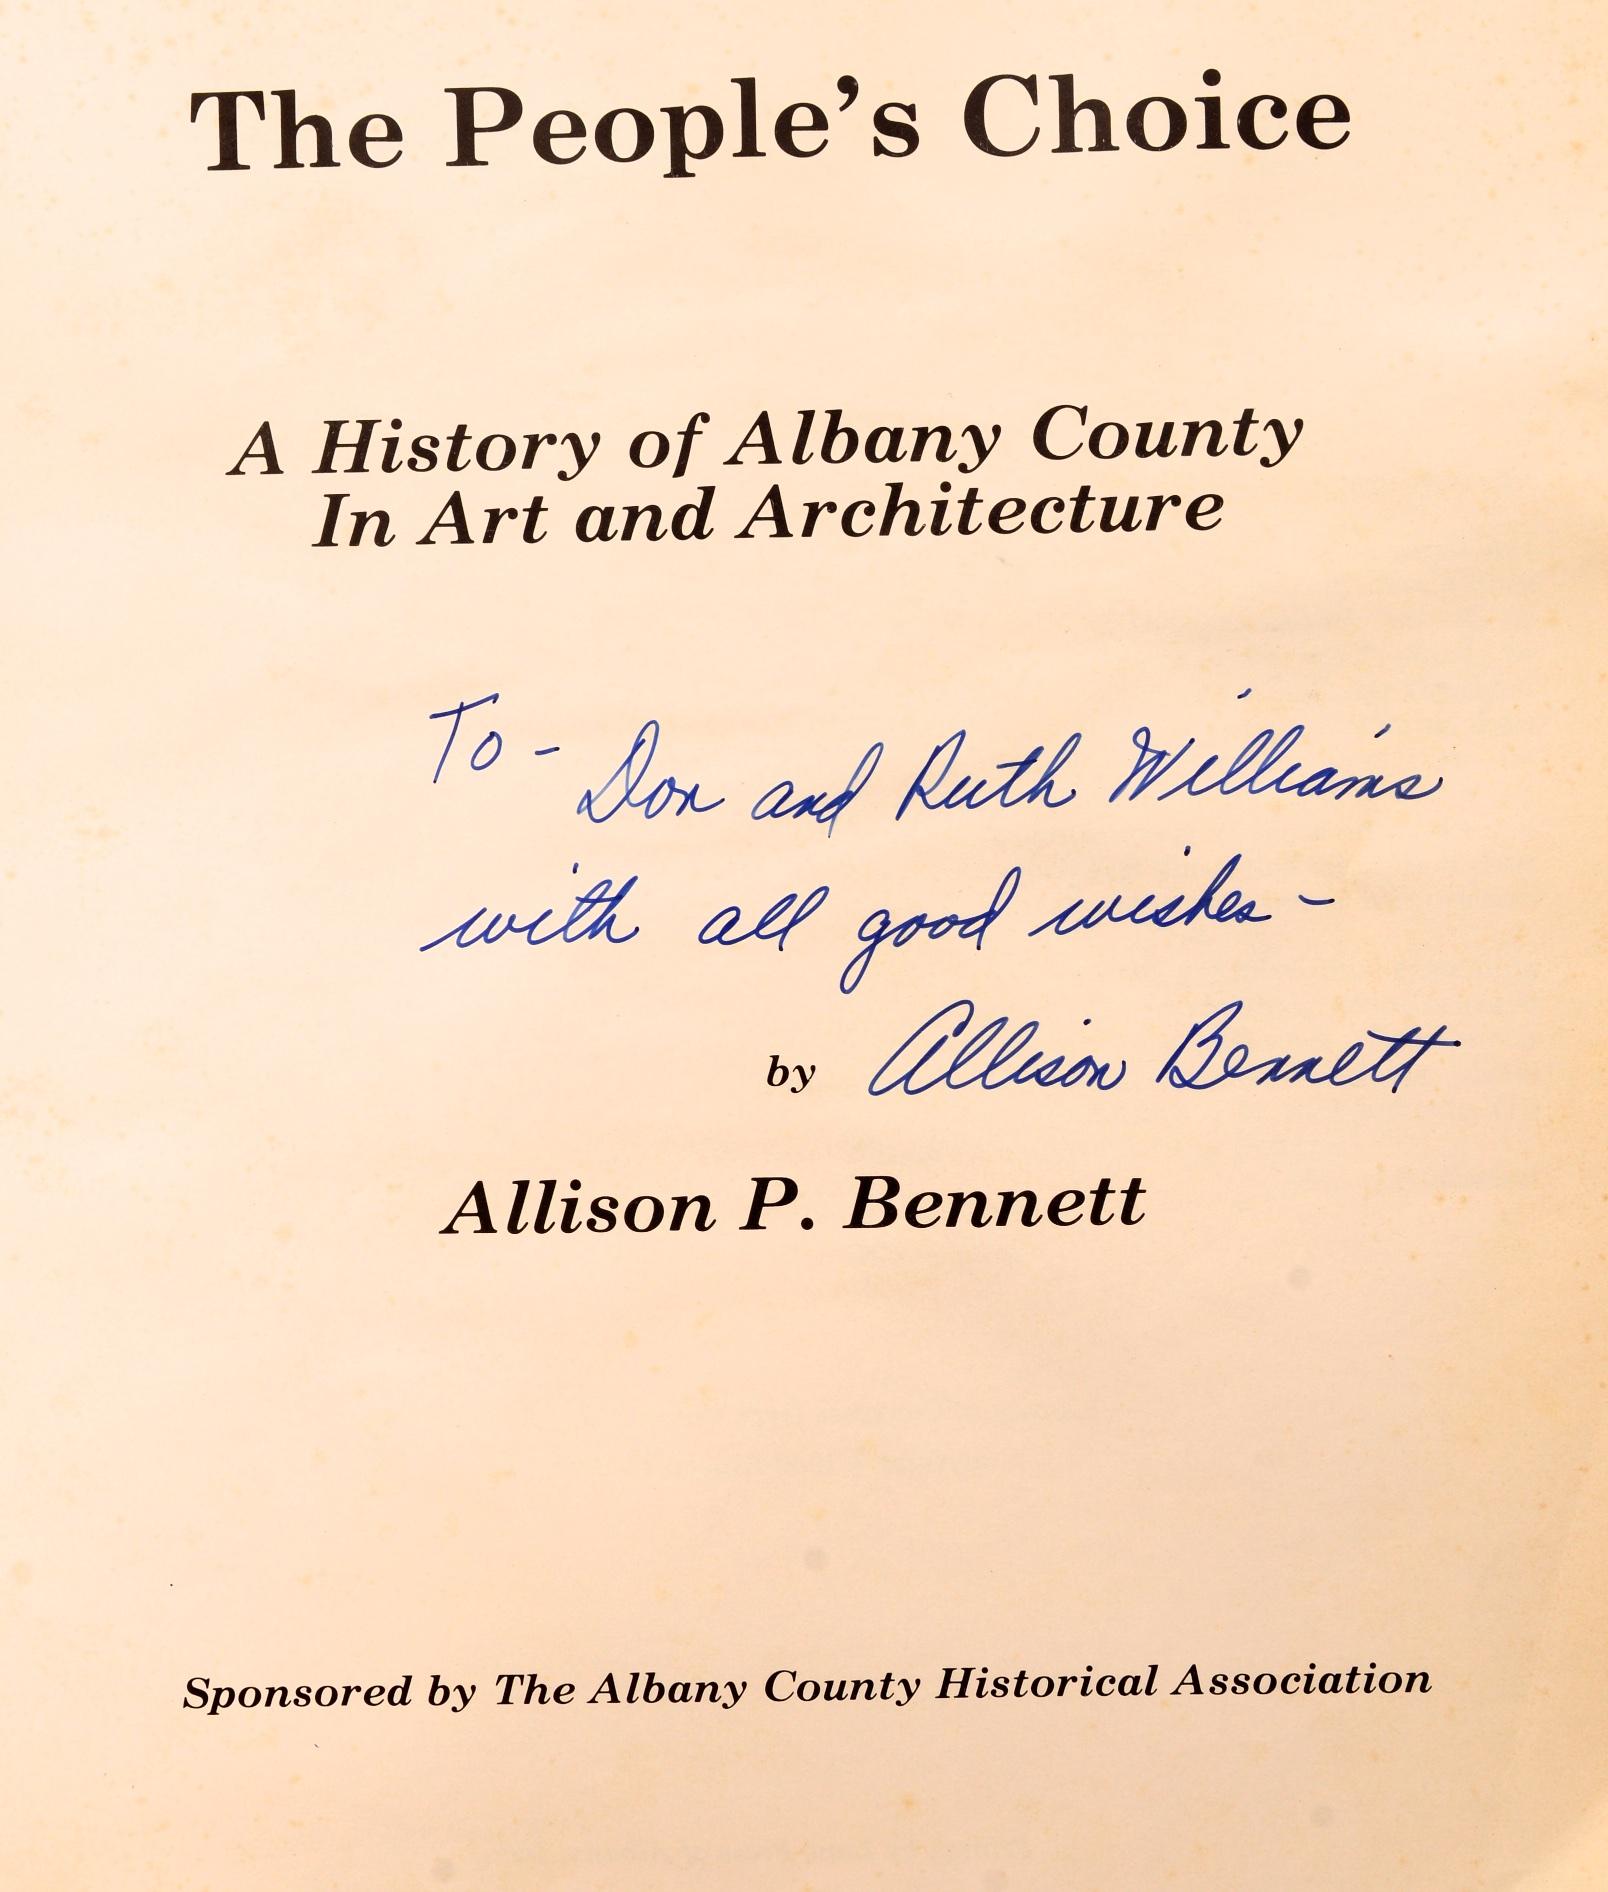 The People’s Choice
A History of Albany County
In Art and Architecture
To - Don and Ruth Williams
with all good wishes -
by Allison Bennett
Allison P. Bennett
Sponsored by The Albany County Historical Association